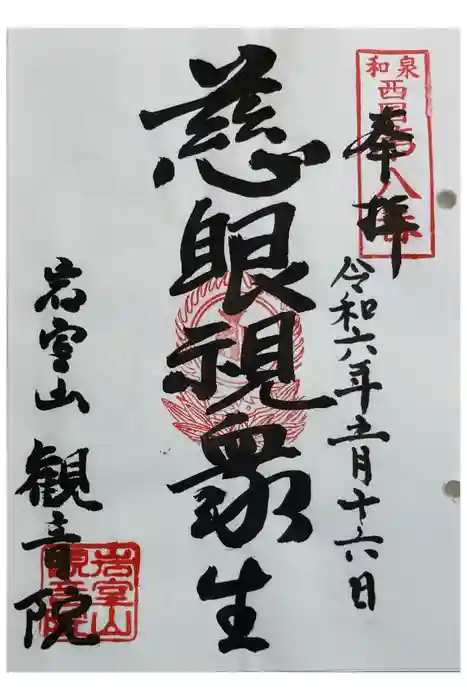 和泉
奉拝
令和六年五月十六日
慈眼視衆生
岩室山 観音院
岩室山
観音院